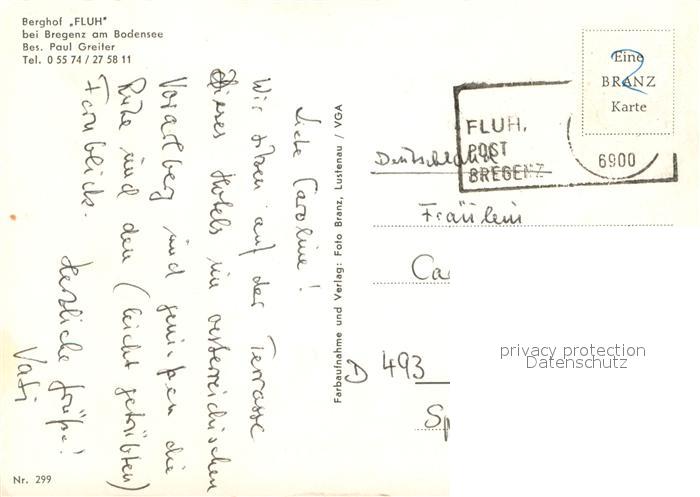 Berghof „FLUH"
bei Bregenz am Bodensee
Bes. Paul Greiter
Tel. 0 55 74 / 27 58 11
Liebe Caroline!
Wir sitzen auf der Terrasse
dieses Hotels im oesterreichischen
Vorarlberg und genießen die
Ruhe und den (leicht getrübten)
Fernblick.
Herzliche Grüße!
Vati
Nr. 299
Farbaufnahme und Verlag: Foto Branz, Lustenau / VGA
Eine
BRANZ
Karte
2
FLUH,
POST
BREGENZ
6900
Deutschland
Fräulein
Ca
D 493
Sp
privacy protection
Datenschutz